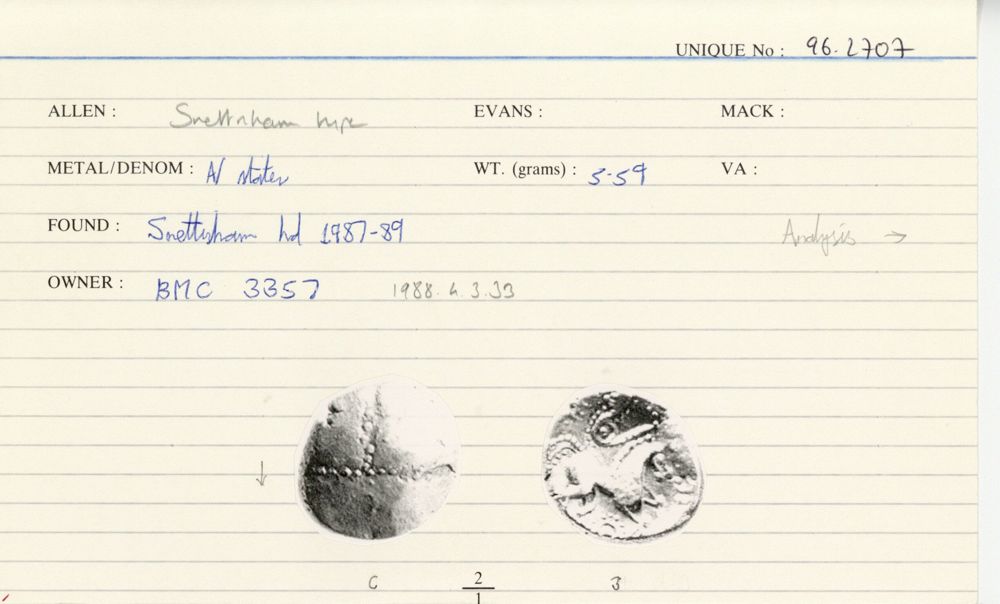 UNIQUE No : 96.2707
ALLEN : Snettisham type EVANS : MACK :
METAL/DENOM : A/ stater WT. (grams) : 5.59 VA :
FOUND : Snettisham hd 1987-89 Analysis →
OWNER : BMC 3357 1988.4.3.33
↓
C 2/1 3